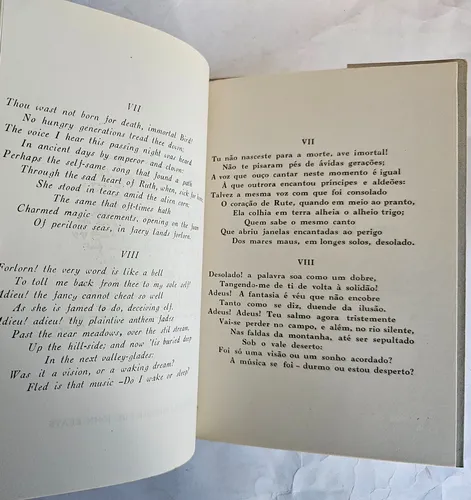 VII
Thou wast not born for death, immortal Bird!
No hungry generations tread thee down;
The voice I hear this passing night was heard
In ancient days by emperor and clown:
Perhaps the self-same song that found a path
Through the sad heart of Ruth, when, sick for home,
She stood in tears amid the alien corn;
The same that oft-times hath
Charmed magic casements, opening on the foam
Of perilous seas, in faery lands forlorn.
VIII
Forlorn! the very word is like a bell
To toll me back from thee to my sole self!
Adieu! the fancy cannot cheat so well
As she is famed to do, deceiving elf.
Adieu! adieu! thy plaintive anthem fades
Past the near meadows, over the still stream,
Up the hill-side; and now 'tis buried deep
In the next valley-glades:
Was it a vision, or a waking dream?
Fled is that music – Do I wake or sleep?
VII
Tu não nasceste para a morte, ave imortal!
Não te pisaram pés de ávidas gerações;
A voz que ouço cantar neste momento é igual
À que outrora encantou príncipes e aldeões:
Talvez a mesma voz com que foi consolado
O coração de Rute, quando em meio ao pranto,
Ela colhia em terra alheia o alheio trigo;
Quem sabe o mesmo canto
Que abriu janelas encantadas ao perigo
Dos mares maus, em longes solos, desolado.
VIII
Desolado! a palavra soa como um dobre,
Tangendo-me de ti de volta à solidão!
Adeus! A fantasia é véu que não encobre
Tanto como se diz, duende da ilusão.
Adeus! Adeus! Teu salmo agora tristemente
Vai-se perder no campo, e além, no rio silente,
Nas faldas da montanha, até ser sepultado
Sob o vale deserto:
Foi só uma visão ou um sonho acordado?
A música se foi – durmo ou estou desperto?